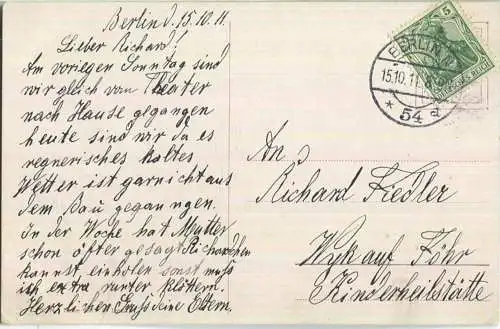 Berlin d. 15.10.11
Lieber Richard!
Am voriegen Sonntag sind
wir gleich vom Theater
nach Hause gegangen
heute sind wir da es
regnerisches kaltes
Wetter ist garnicht aus
dem Bau gegangen.
In der Woche hat Mutter
schon öfter gesagt Richardchen
kannst einholen sonst muß
ich extra runter klettern.
Herzlichen Gruß deine Eltern.
BERLIN N
15.10.11
* 54 a
5
DEUTSCHES REICH
An
Richard Fiedler
Wyk auf Föhr
Kinderheilstätte